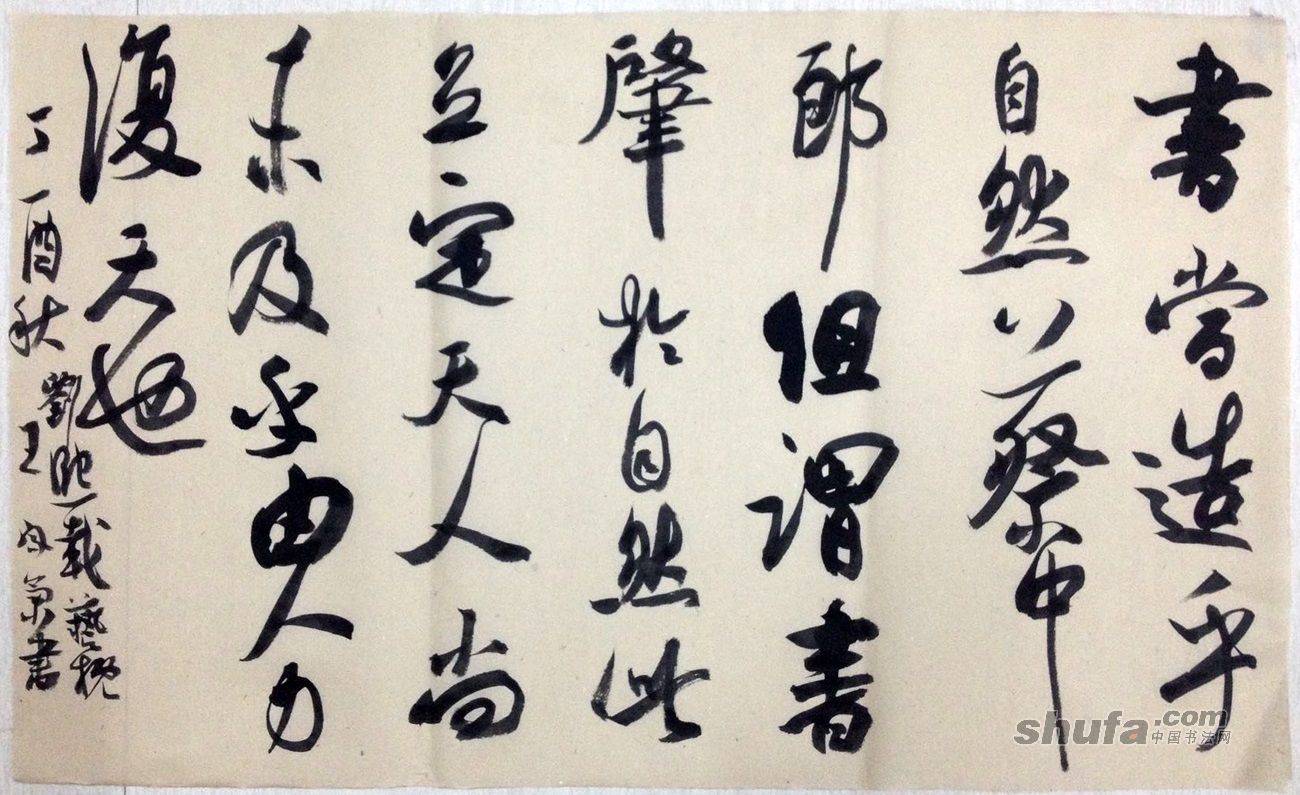 書當造乎
自然蔡中
郎但謂書
肇於自然此
立定天人尚
未及乎由人力
復天也
劉熙載藝概
丁酉秋王書
shufa.com
中国书法网